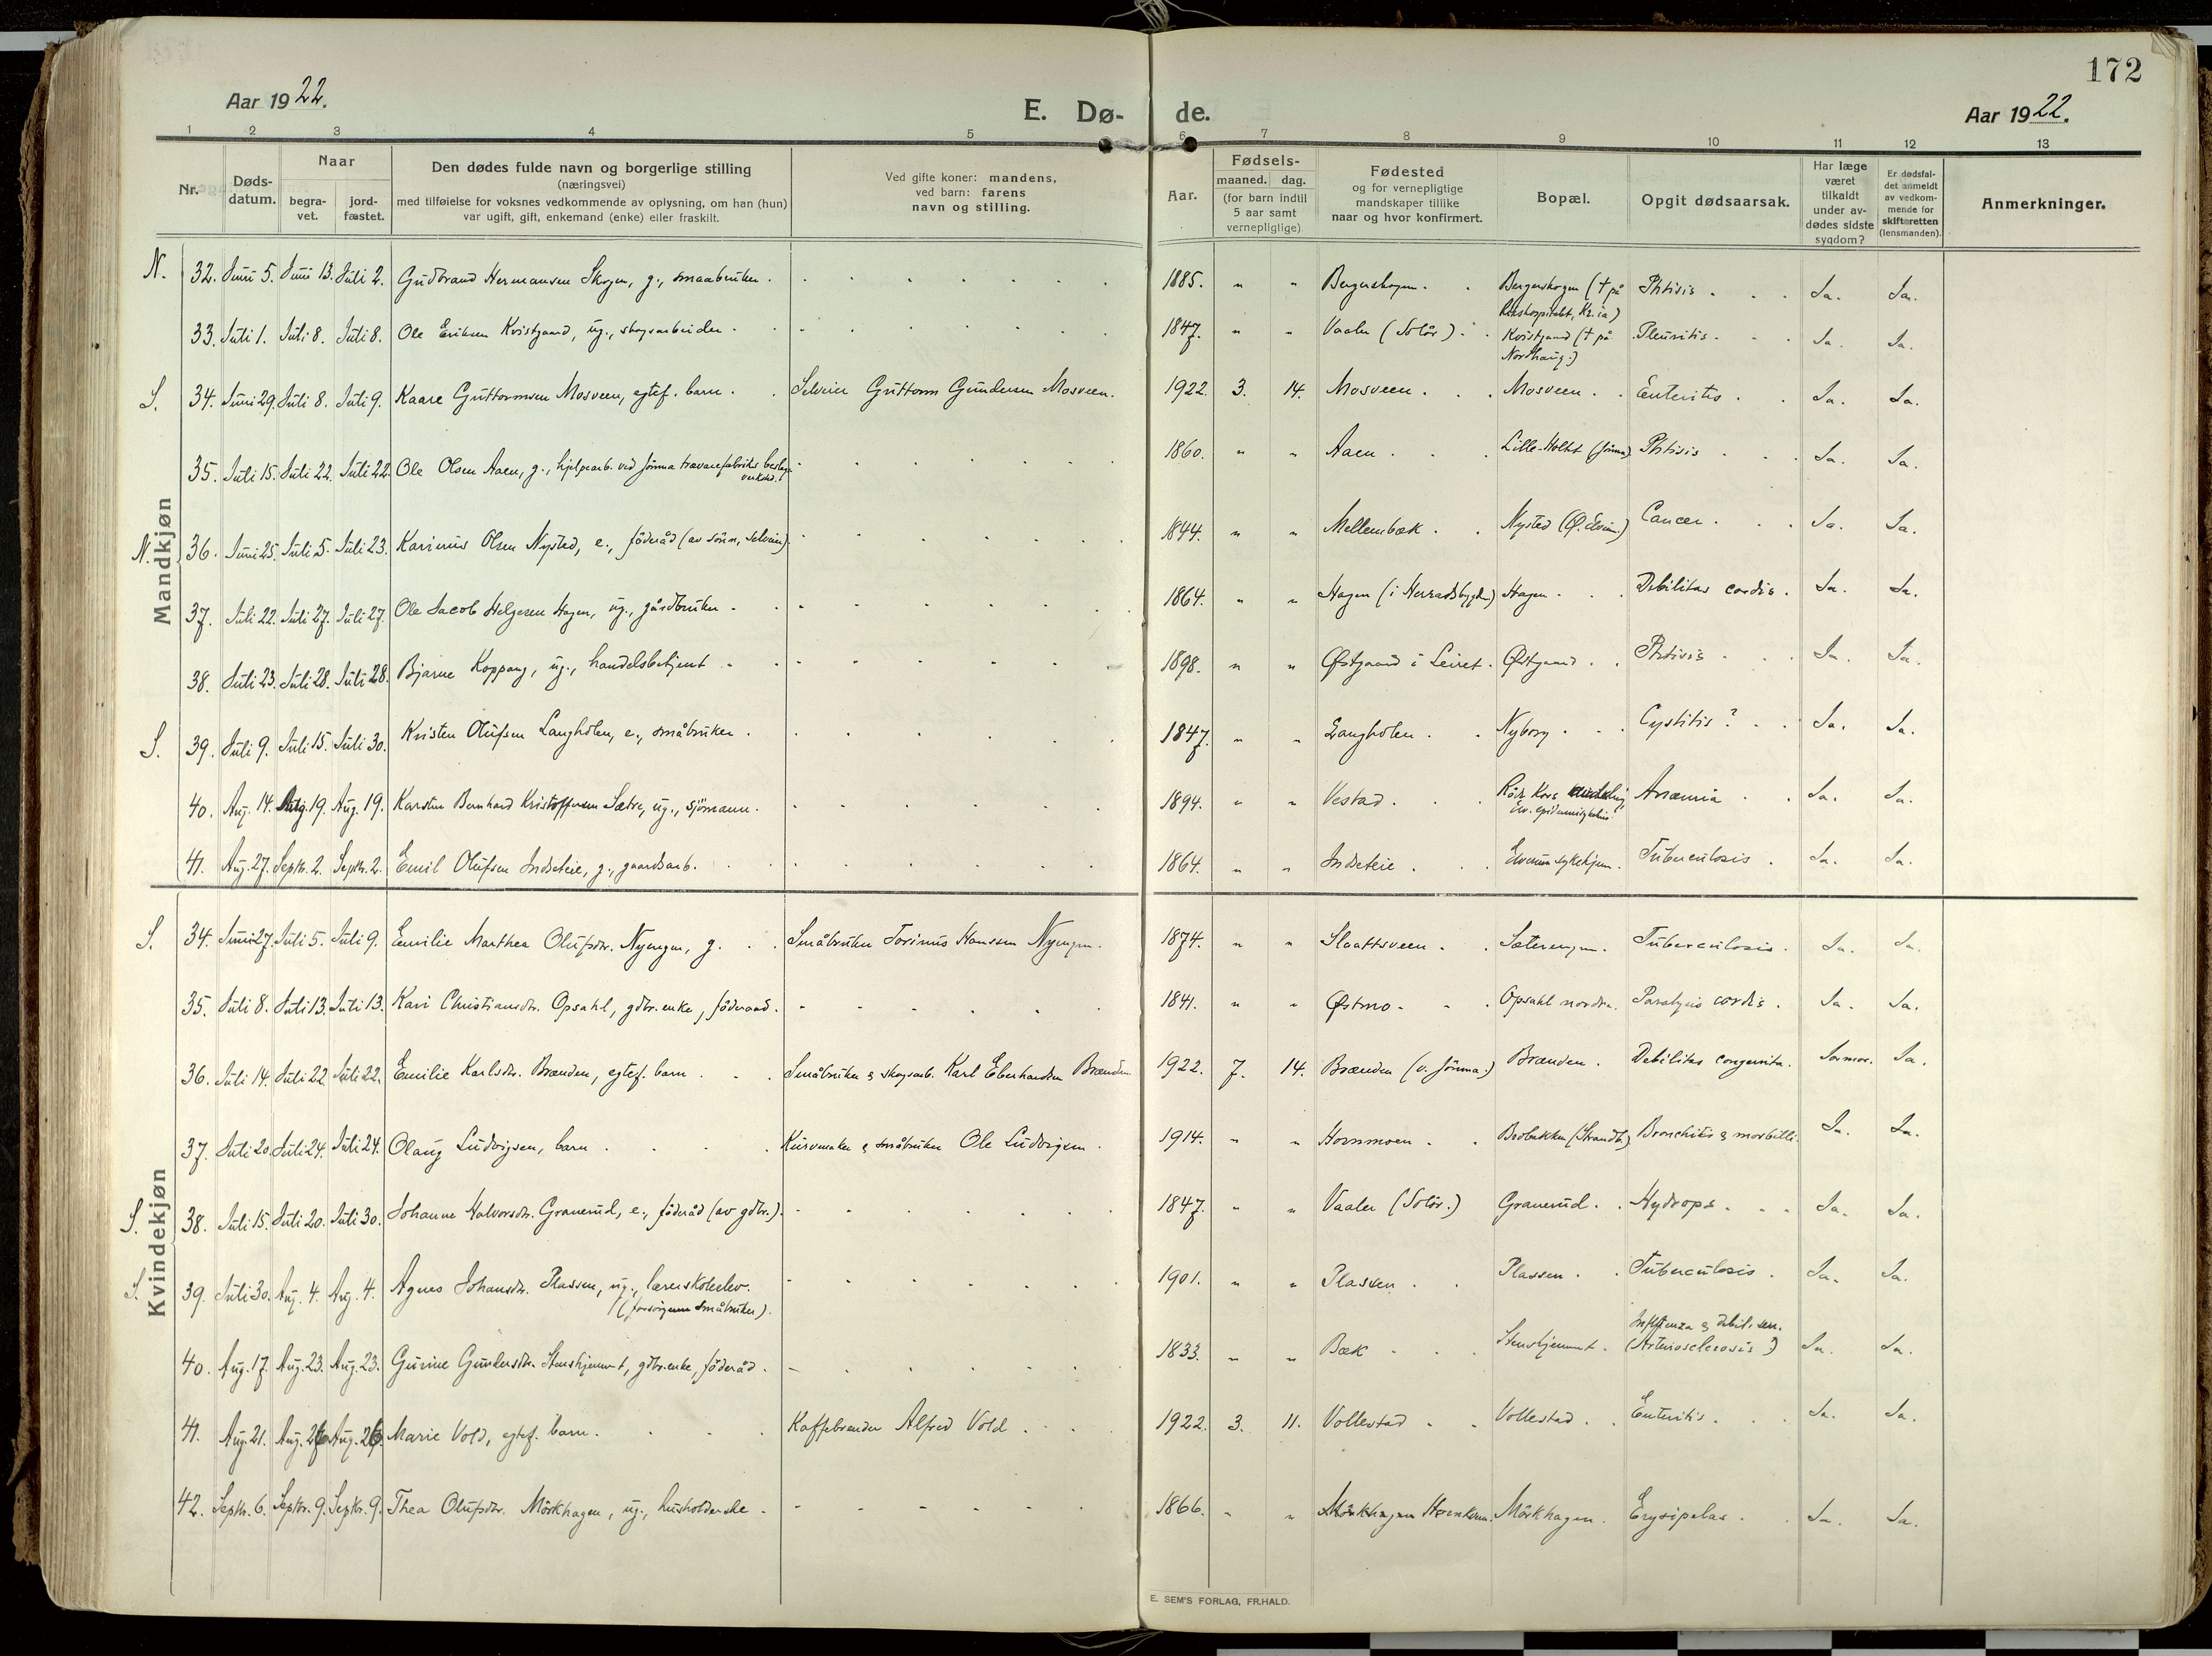 172
Aar 1922.
E. Dø-
de.
Aar 1922.
1 2 3 4 5 6 7 8 9 10 11 12 13
Nr.
Døds-
datum.
Naar
begra-
vet.
jord-
fæstet.
Den dødes fulde navn og borgerlige stilling
(næringsvei)
med tilføielse for voksnes vedkommende av oplysning, om han (hun)
var ugift, gift, enkemand (enke) eller fraskilt.
Ved gifte koner: mandens,
ved barn: farens
navn og stilling.
Aar.
Fødsels-
maaned. dag.
(for barn indtil
5 aar samt
vernepligtige)
Fødested
og for vernepligtige
mandskaper tillike
naar og hvor konfirmert.
Bopæl.
Opgit dødsaarsak.
Har læge
været
tilkaldt
under av-
dødes sidste
sygdom?
Er dødsfal-
det anmeldt
av vedkom-
mende for
skifteretten
(lensmanden).
Anmerkninger.
Mandkjøn
N. 32. Juni 5. Juni 13. Juli 2. Gudbrand Hermansen Skogen, g., smaabruker. 1885. " " Bergerskogen. Bergerskogen († på Rikshospitalet, Kr.ia) Phtisis. Ja. Ja.
33. Juli 1. Juli 8. Juli 8. Ole Eriksen Kvistgaard, ug., skogsarbeider. 1847. " " Vaaler (Solør). Kvistgaard († på Nordhaug.) Pleuritis. Ja. Ja.
S. 34. Juni 29. Juli 8. Juli 9. Kaare Guttormsen Mosveen, egtef. barn. Selveier Guttorm Gundersen Mosveen. 1922. 3. 14. Mosveen. Mosveen. Enteritis. Ja. Ja.
35. Juli 15. Juli 22. Juli 22. Ole Olsen Aaen, g., hjelpearb. ved Jømna trævarefabriks 1860. " " Aaen. Lille-Holtet (Jømna) Phtisis. Ja. Ja.
N. 36. Juni 25. Juli 5. Juli 23. Karinus Olsen Nysted, e., føderåd (av sønn, selveier). 1844. " " Mellembæk. Nysted (Ø. Elvrum.) Cancer. Ja. Ja.
37. Juli 22. Juli 27. Juli 27. Ole Jacob Helgesen Hagen, ug., gårdbruker. 1864. " " Hagen (i Herradsbygden) Hagen. Debilitas cordis. Ja. Ja.
38. Juli 23. Juli 28. Juli 28. Bjarne Koppang, ug., handelsbetjent. 1898. " " Østgaard i Leiret. Østgaard. Phtisis. Ja. Ja.
S. 39. Juli 9. Juli 15. Juli 30. Kristen Olufsen Langholen, e., småbruker. 1847. " " Langholen. Nyborg. Cystitis? Ja. Ja.
40. Aug. 14. Aug. 19. Aug. 19. Karsten Bernhard Kristoffersen Sætre, ug., sjömann. 1894. " " Vestad. Röde Kors Anæmia. Ja. Ja.
41. Aug. 27. Septr. 2. Septr. 2. Emil Olufsen Indseteie, g., gaardsarb. 1864. " " Indseteie. Elverum sykehjem. Tuberculosis. Ja. Ja.
Kvindekjøn
S. 34. Juni 27. Juli 5. Juli 9. Emilie Marthea Olufsdtr. Nyengen, g. Småbruker Torinus Hanssen Nyengen. 1874. " " Slaattsveen. Sæterengen. Tuberculosis. Ja. Ja.
35. Juli 8. Juli 13. Juli 13. Kari Christiansdtr. Opsahl, gdbr.enke, föderaad. 1841. " " Østmo. Opsahl nordre. Paralysis cordis. Ja. Ja.
36. Juli 14. Juli 22. Juli 22. Emilie Karlsdtr. Brænden, egtef. barn. Småbruker & skogsarb. Karl Eberhardsen Brænden. 1922. 7. 14. Brænden (v. Jömna.) Brænden. Debilitas congenita. Jormor. Ja.
37. Juli 20. Juli 24. Juli 24. Olaug Ludvigsen, barn. Kurvmaker & småbruker Ole Ludvigsen. 1914. " " Hornmoen. Brobakken (Strandb.) Bronchitis & morbilli. Ja. Ja.
S. 38. Juli 15. Juli 20. Juli 30. Johanne Halvorsdtr. Granerud, e., föderåd (av gdbr.). 1847. " " Vaaler (Solör.) Granerud. Hydrops. Ja. Ja.
S. 39. Juli 30. Aug. 4. Aug. 4. Agnes Johansdtr. Plassen, ug., lærerskoleelev. (forsørgeren småbruker). 1901. " " Plassen. Plassen. Tuberculosis. Ja. Ja.
40. Aug. 17. Aug. 23. Aug. 23. Gurine Gundersdtr. Stenshjemmet, gdbr.enke, föderåd. 1833. " " Bæk Stenshjemmet. Influenza & debil. sen. (Arteriosclerosis?) Ja. Ja.
41. Aug. 21. Aug. 26. Aug. 26. Marie Vold, egtef. barn. Kaffebrender Alfred Vold. 1922. 3. 11. Vollestad. Vollestad. Enteritis. Ja. Ja.
42. Septr. 6. Septr. 9. Septr. 9. Thea Olufsdtr. Mörkhagen, ug., husholderske. 1866. " " Mörkhagen. Erysipelas. Ja. Ja.
E. SEM'S FORLAG, FR.HALD.